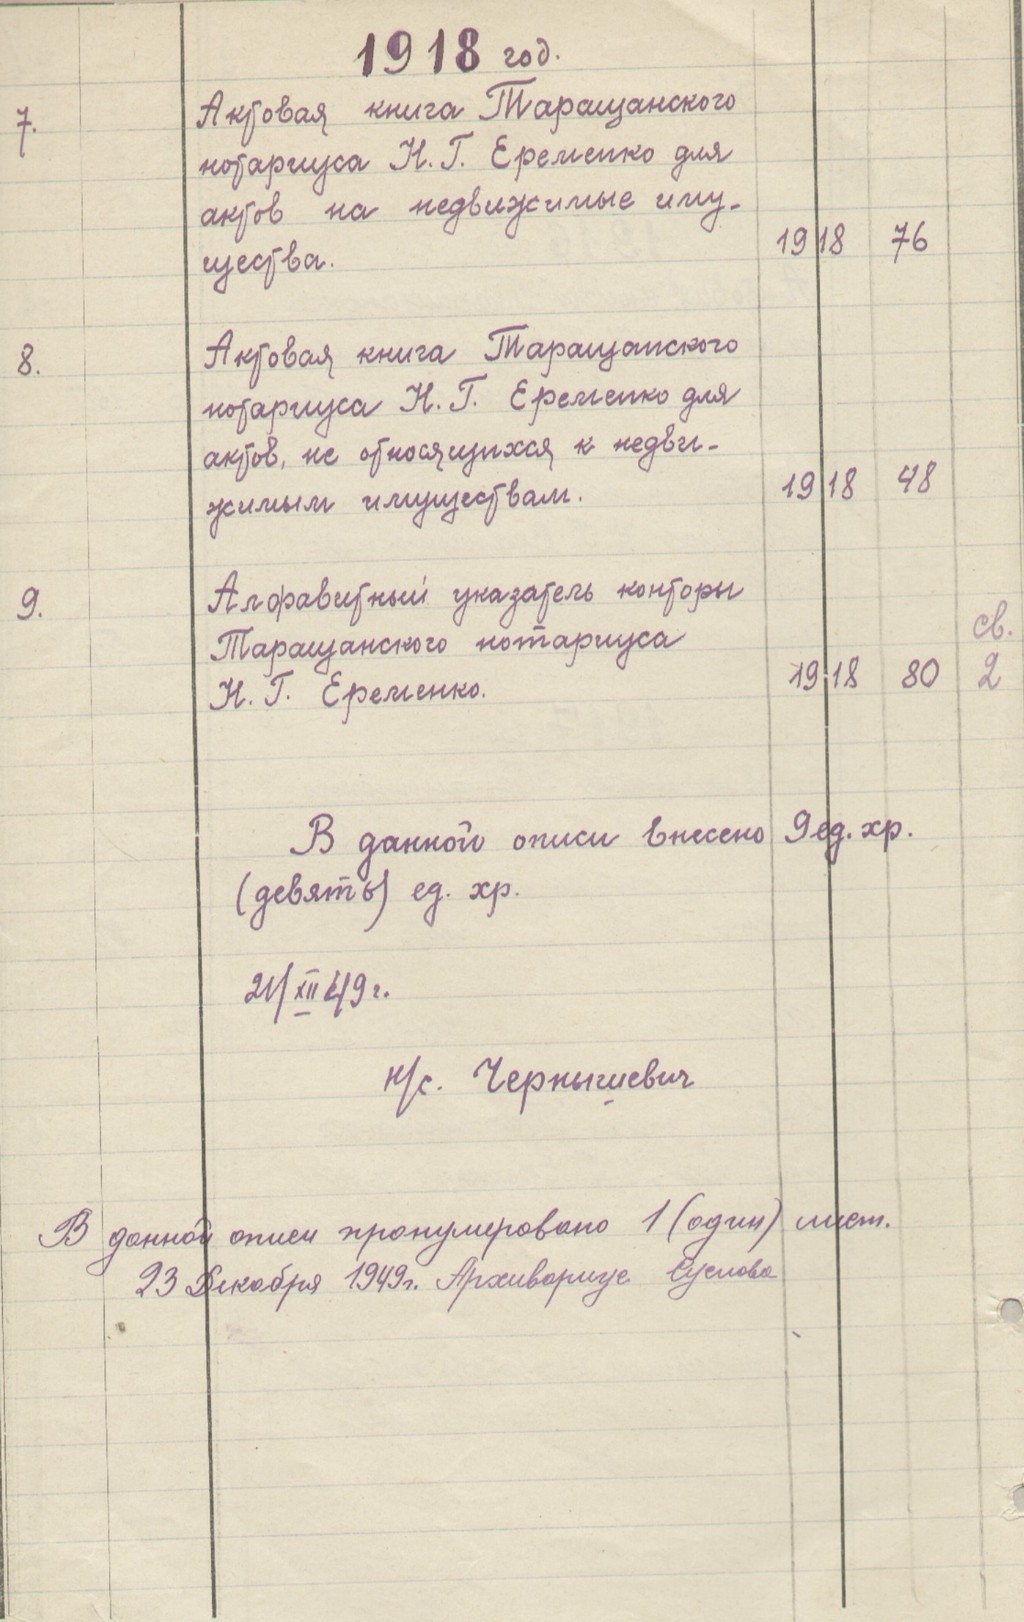 1918 год.
7. Актовая книга Таращанского
нотариуса Н. Г. Еременко для
актов на недвижимые иму-
щества. 1918 76
8. Актовая книга Таращанского
нотариуса Н. Г. Еременко для
актов, не относящихся к недви-
жимым имуществам. 1918 48
9. Алфавитный указатель конторы
св.
Таращанского нотариуса
Н. Г. Еременко. 1918 80 2
В данной описи внесено 9 ед. хр.
(девять) ед. хр.
21/XII 49 г.
н/с. Чернышевич
В данной описи пронумеровано 1 (один) лист.
23 Декабря 1949 г. Архивариус Суслова